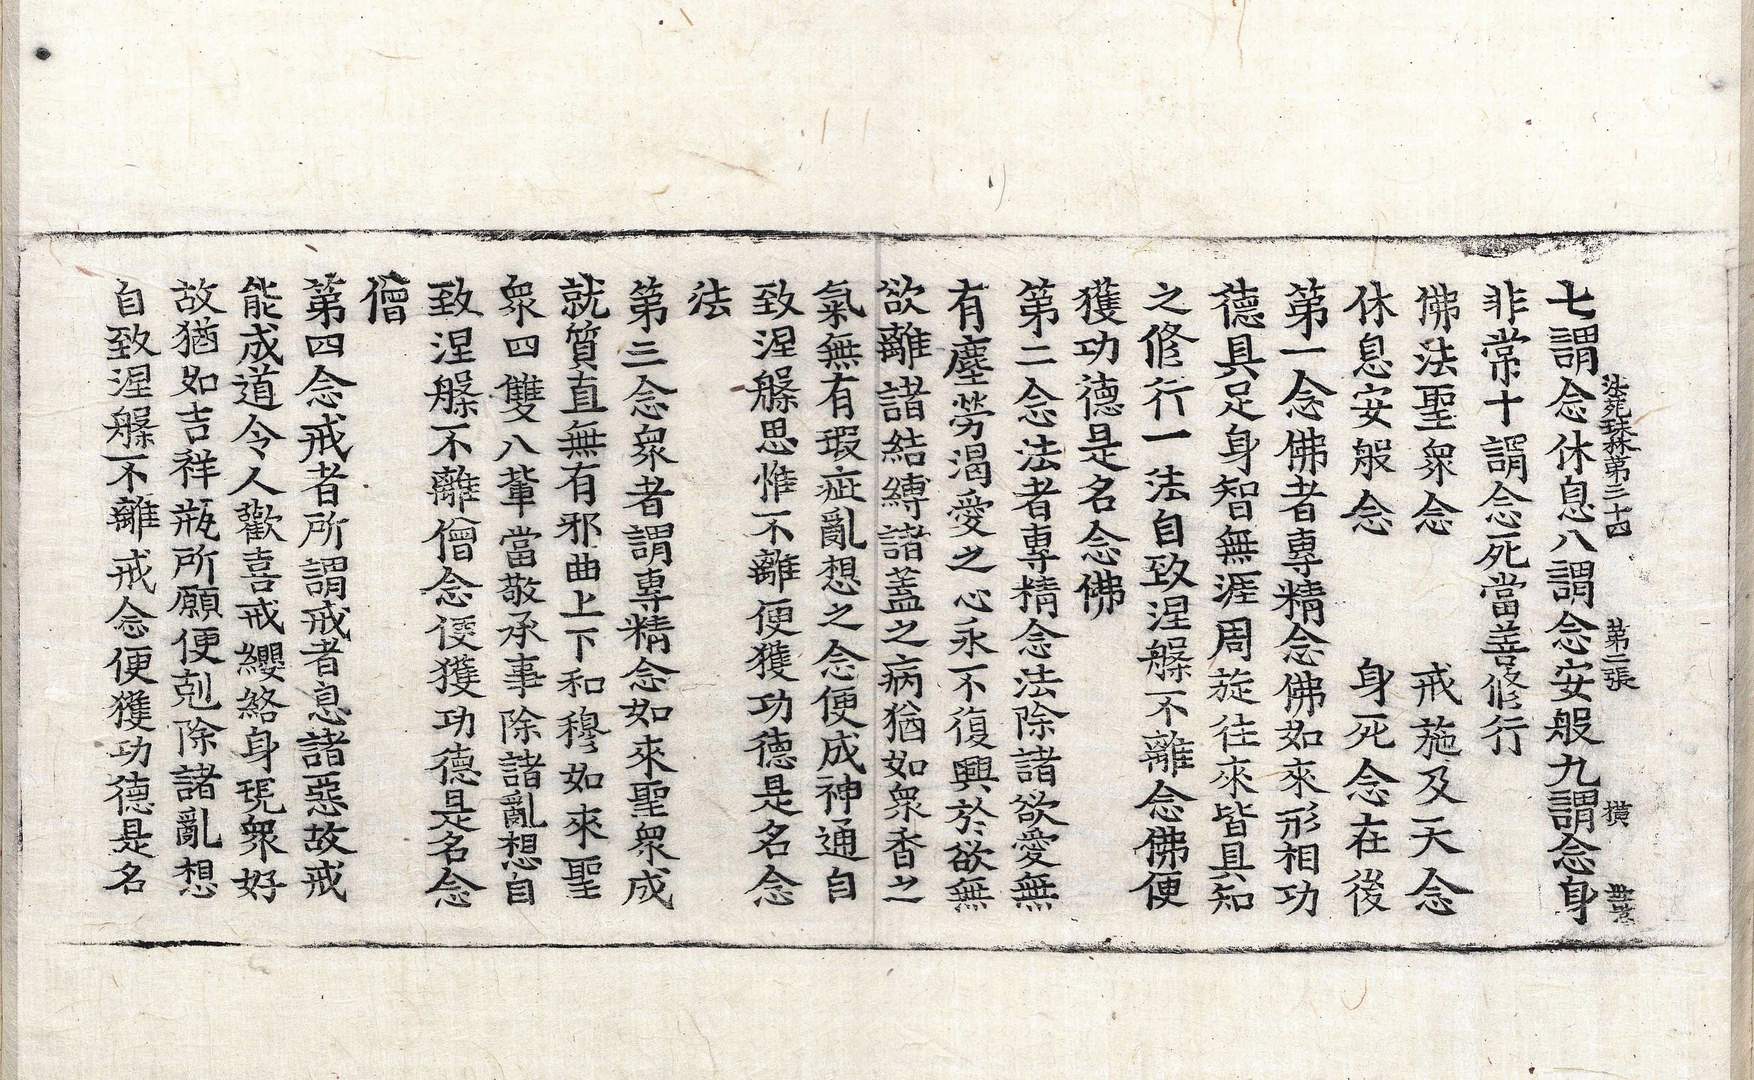 法苑珠林第三十四　第二張　橫
七謂念休息八謂念安般九謂念身
非常十謂念死當善修行
佛法聖衆念　戒施及天念
休息安般念　身死念在後
第一念佛者專精念佛如來形相功
德具足身智無涯周旋往來皆具知
之修行一法自致涅槃不離念佛便
獲功德是名念佛
第二念法者專精念法除諸欲愛無
有塵勞渴愛之心永不復興於欲無
欲離諸結縛諸蓋之病猶如衆香之
氣無有瑕疵亂想之念便成神通自
致涅槃思惟不離便獲功德是名念
法
第三念衆者謂專精念如來聖衆成
就質直無有邪曲上下和穆如來聖
衆四雙八輩當敬承事除諸亂想自
致涅槃不離僧念便獲功德是名念
僧
第四念戒者所謂戒者息諸惡故戒
能成道令人歡喜戒纓絡身現衆好
故猶如吉祥瓶所願便剋除諸亂想
自致涅槃不離戒念便獲功德是名